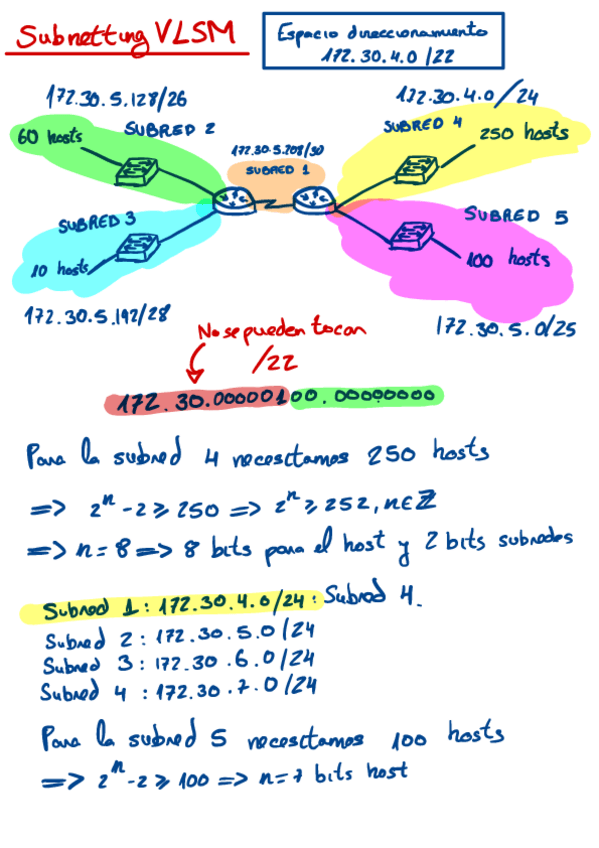 Subnetting VLSM
Espacio direccionamiento
172.30.4.0/22
172.30.5.128/26
172.30.4.0/24
60 hosts
SUBRED 2
172.30.5.208/30
SUBRED 1
SUBRED 4
250 hosts
SUBRED 3
10 hosts
SUBRED 5
100 hosts
172.30.5.192/28
172.30.5.0/25
No se pueden tocar
/22
172.30.00000100.00000000
Para la subred 4 necesitamos 250 hosts
=> 2^n - 2 ≥ 250 => 2^n ≥ 252, n∈ℤ
=> n = 8 => 8 bits para el host y 2 bits subredes
Subred 1: 172.30.4.0/24: Subred 4.
Subred 2: 172.30.5.0/24
Subred 3: 172.30.6.0/24
Subred 4: 172.30.7.0/24
Para la subred 5 necesitamos 100 hosts
=> 2^n - 2 ≥ 100 => n = 7 bits host